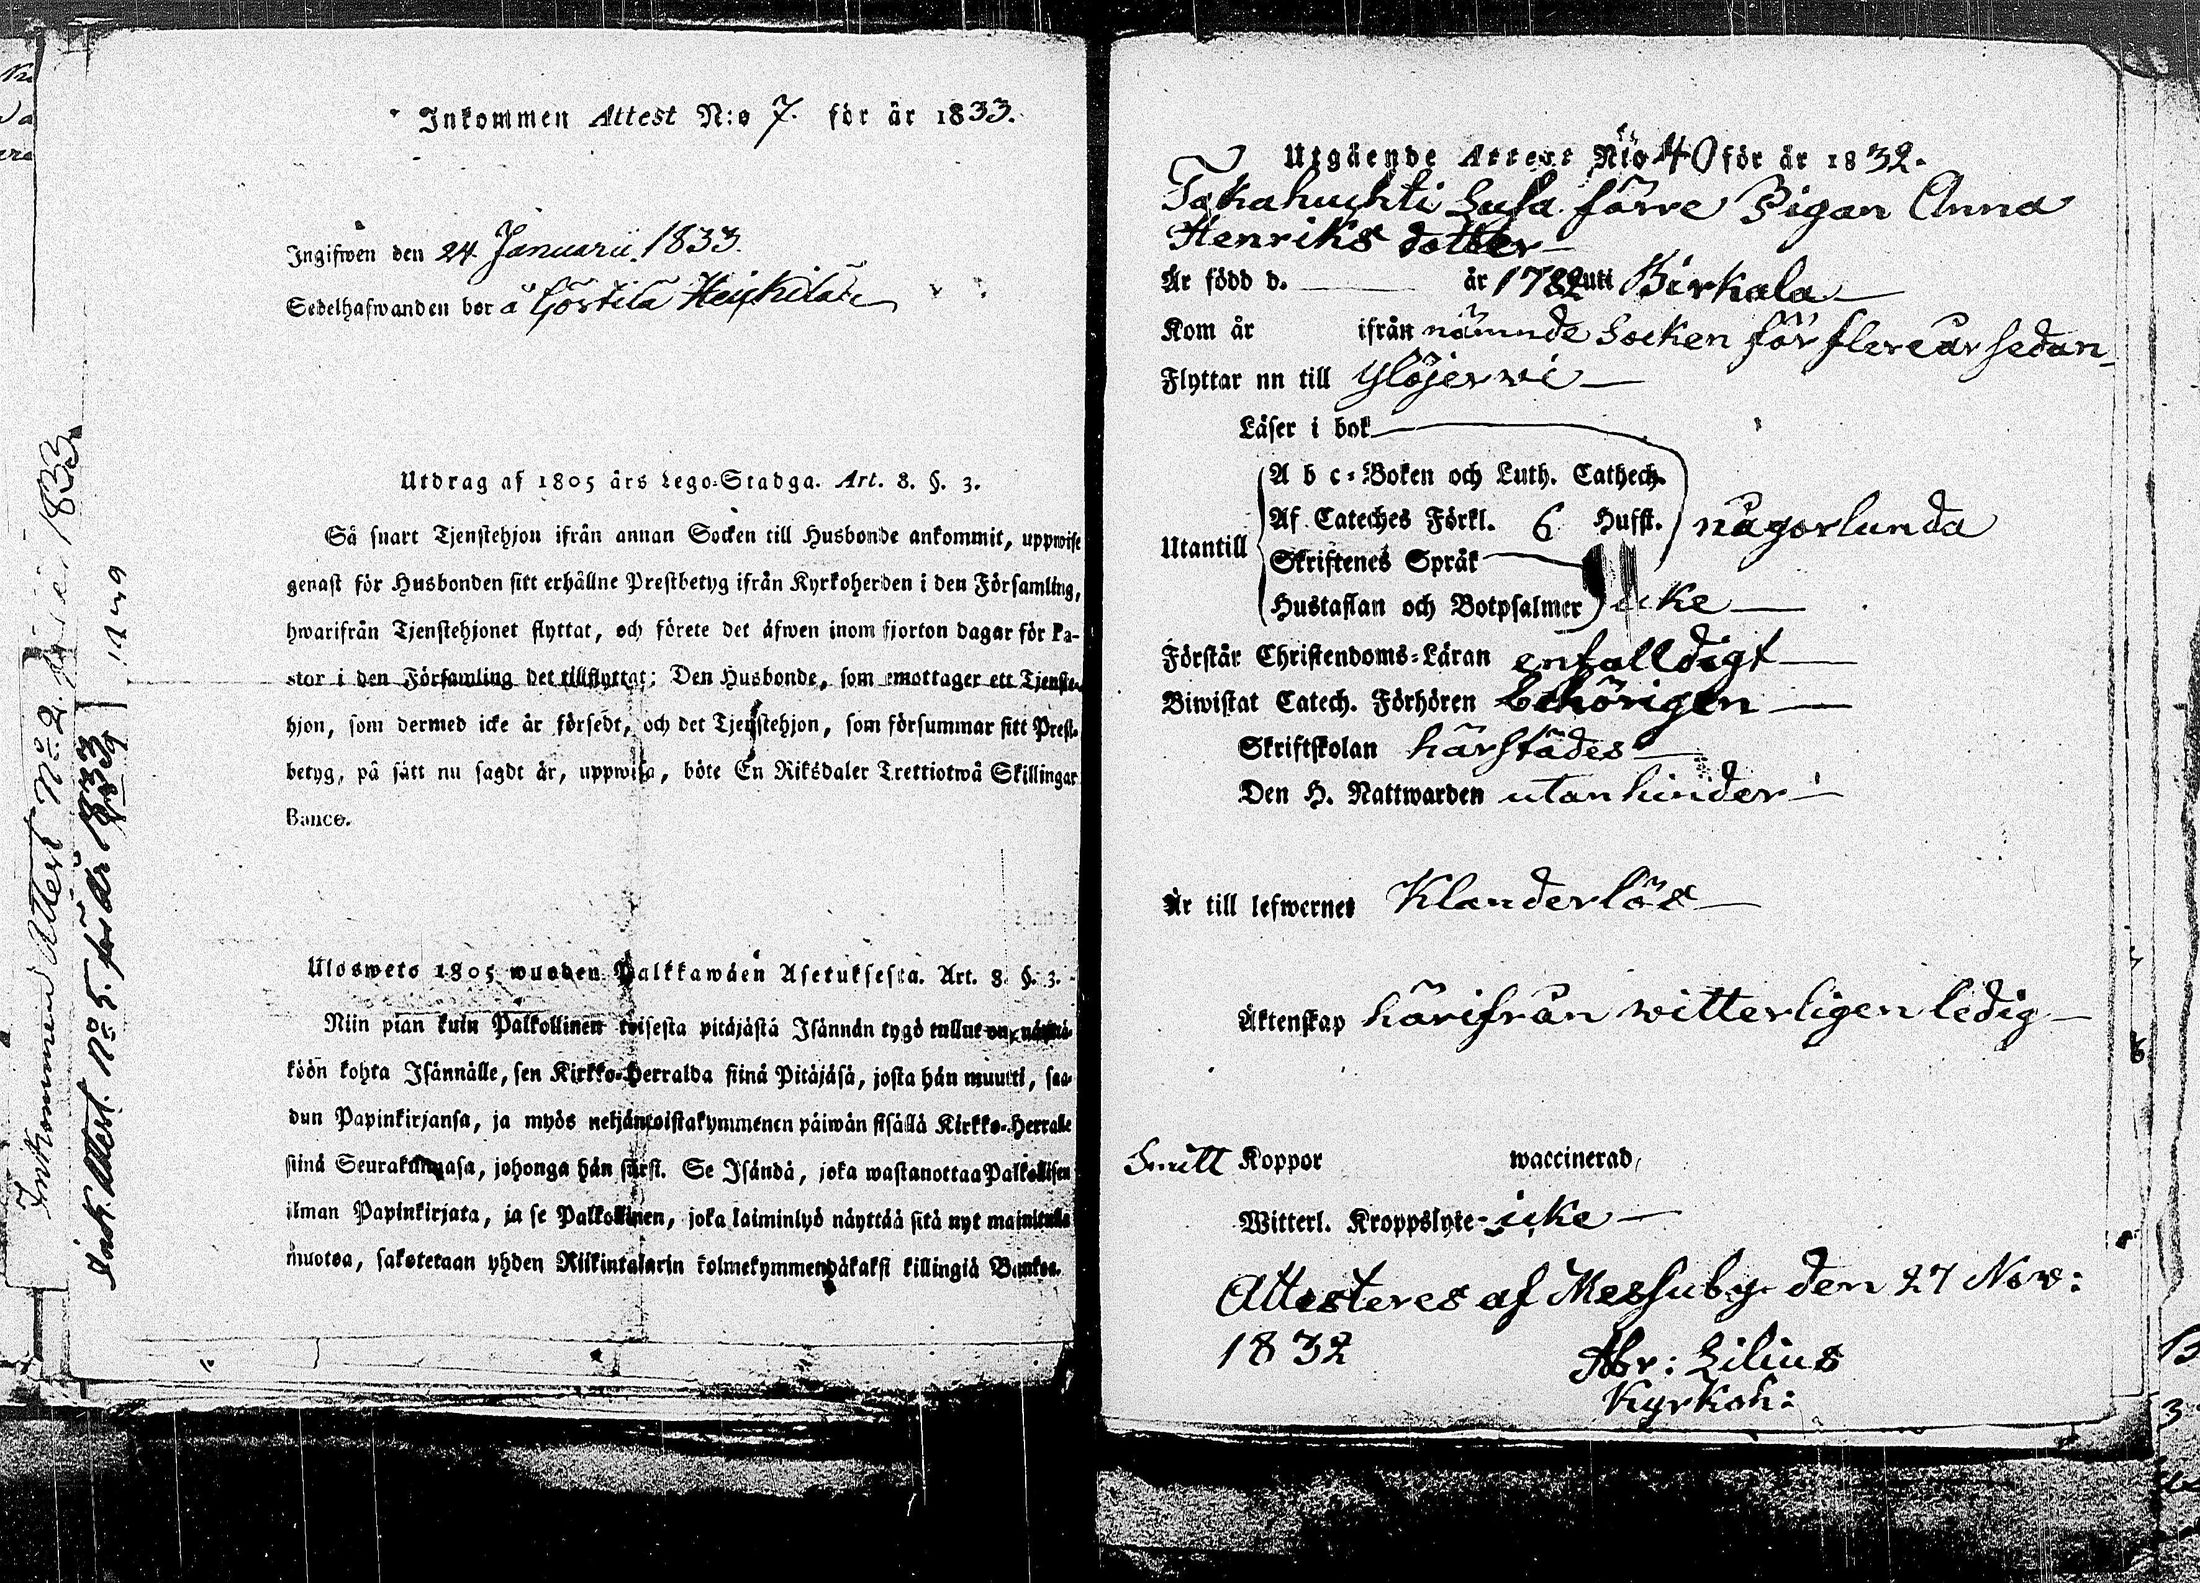 Inkommen Attest N:o 7. för år 1833.
Ingifwen den 24 Januarii 1833
Sedelhafwanden bor å Göstilä Heikkilä
Utdrag af 1805 års Lego-Stadga. Art. 8. §. 3.
Så snart Tjenstehjon ifrån annan Socken till Husbonde ankommit, uppwise
genast för Husbonden sitt erhållne Prestbetyg ifrån Kyrkoherden i den Församling,
hwarifrån Tjenstehjonet flyttat, och förete det äfwen inom fjorton dagar för Pa-
stor i den Församling det tillflyttat; Den Husbonde, som emottager ett Tjenste-
hjon, som dermed icke är försedt, och det Tjenstehjon, som försummar sitt Prest-
betyg, på sätt nu sagdt är, uppwisa, böte En Riksdaler Trettiotwå Skillingar
Banco.
Ulosweto 1805 wuoden Palkkawäen Asetuksesta. Art. 8. §. 3.
Niin pian kuin Palkollinen toisesta pitäjästä Isännän tygö tullut on, näyttä-
köön kohta Isännälle, sen Kirkko-Herralda siinä Pitäjäsä, josta hän muutti, saa-
dun Papinkirjansa, ja myös neljäntoistakymmenen päiwän sisällä Kirkko-Herralle
siinä Seurakunnasa, johonga hän siirsi. Se Isändä, joka wastanottaa Palkollisen
ilman Papinkirjata, ja se Palkollinen, joka laiminlyö näyttää sitä nyt mainitulla
muotoa, sakotetaan yhden Riikintalarin kolmekymmendäkaksi killingiä Bankoa.
Inkommen Attest No 2. för år 1833
Ink. Attest. No 5. för år 1833
Utgående Attest N:o 40 för år 1832.
Takahuhti Lusa förre Pigan Anna
Henriks dotter
Är född d. år 1782 uti Birkala
Kom år ifrån nämnde Socken för flere år sedan
Flyttar nn till Ylöjerwi
Läser i bok
A b c-Boken och Luth. Cathech.
Af Cateches Förkl. 6 Hufst. någorlunda
Utantill
Skriftenes Språk
Hustaflan och Botpsalmer icke
Förstår Christendoms-Läran enfalldigt
Biwistat Catech. Förhören behörigen
Skriftskolan härstädes
Den H. Nattwarden utan hinder
Är till lefwernet Klanderlös
Äktenskap härifrån witterligen ledig
Koppor waccinerad
Witterl. Kroppslyte icke
Attesteres af Messuby den 27 Nov:
1832
Abr: Lilius
Kyrkoh: